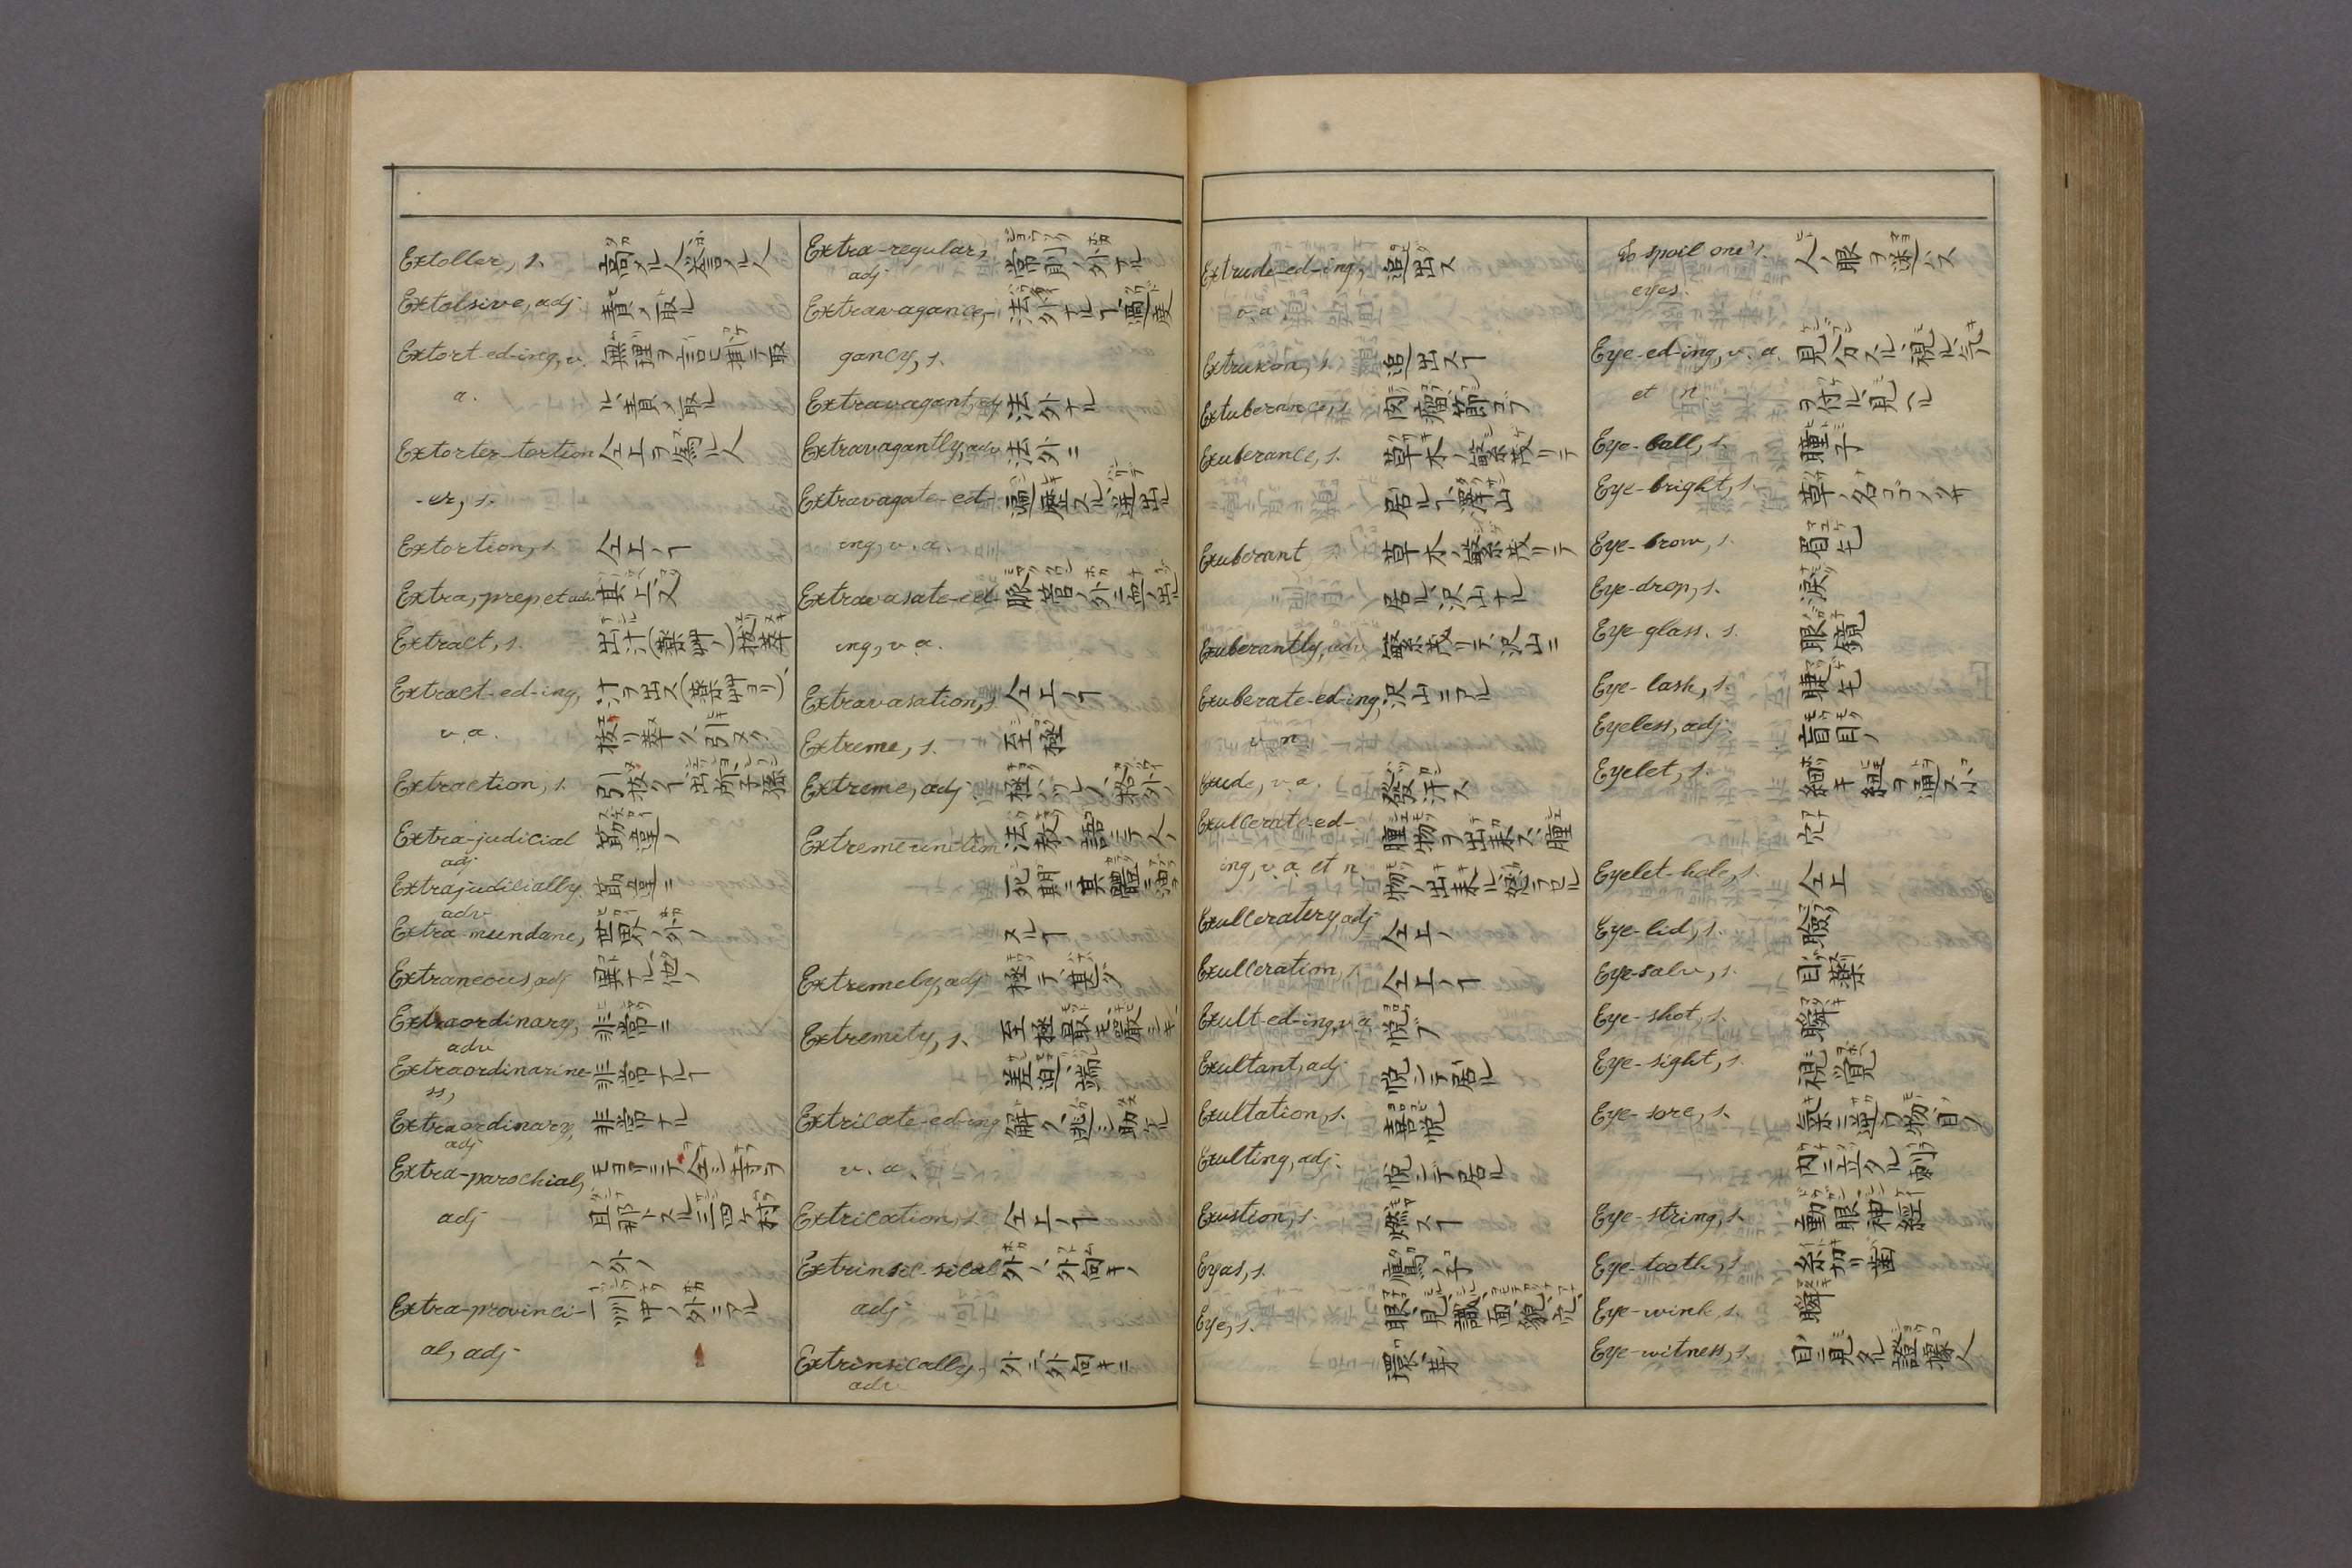 Extoller, s. 高メル人、誉ル人
Extolsive, adj 責メ取ル
Extort-ed-ing, v. 無理ヲ言ヒ掛テ取
a. ル、責メ取ル
Extorter-tortion 仝上ヲ為ル人
-er, s.
Extortion, s. 仝上ノ
Extra, prep et adv 其上ニ又
Extract, s. 出汁(薬艸ノ)抜萃
Extract-ed-ing, 汁ヲ出ス(薬艸ヨリ)、
v. a. 抜リ萃ク、引ヌク
Extraction, s. 引抜クヿ、出所、子孫
Extra-judicial 筋違ノ
adj
Extrajudicially 筋違ニ
adv
Extra-mundane, 世界ノ外ノ
Extraneous, adj 異ナル、他ノ
Extraordinary, 非常ニ
adv
Extraordinarine- 非常ナルヿ
ss,
Extraordinary, 非常ナル
adj
Extra-parochial,
adj 旦那トスル三四ケ村
ノ外ノ
Extra-provinci- 一州中ノ外ニアル
al, adj
Extra-regular, 常則ノ外ナル
adj
Extravagance, 法外ナルヿ、過度
gancy, s.
Extravagant, adj 法外ナル
Extravagantly, adv 法外ニ
Extravagate-ed- 遍歴スル、迷出ル
ing, v. a.
Extravasate-ed- 脈管ノ外ニ血ノ出ル
ing, v a.
Extravasation, s. 仝上ノヿ
Extreme, s. 至極
Extreme, adj 極ハツレノ、格外ノ
Extreme unction 法教ノ語ニテ人ノ
死期ニ其體ニ油ヲ
ヌルヿ
Extremely, adj 極テ、甚ダ
Extremity, s. 至極、最モ嚴シキヿ
差迫、端
Extricate-ed-ing 解ク、逃シ助ケル
v. a.
Extrication, s. 仝上ノヿ
Extrinsic-sical 外ノ、外向キノ
adj
Extrinsically, 外ニ、外向キニ
adv
Extrude-ed-ing, 追出ス
v. a.
Extrusion, s. 追出スヿ
Extuberance, s. 肉瘤、節コブ
Exuberance, s. 草木ノ繁茂リテ
居ルヿ、澤山
Exuberant 草木ノ繁茂リテ
居ル、沢山ナル
Exuberantly, adv 繁茂リテ、沢山ニ
Exuberate-ed-ing, 沢山ニアル
v. n
Exude, v. a. 發汗ス
Exulcerate-ed- 腫物ヲ出来ス、腫
ing, v. a. et n. 物ノ出来ル、怒ラセル
Exulceratery, adj 仝上ノ
Exulceration, s. 仝上ノヿ
Exult-ed-ing, v. a. 悦ブ
Exultant, adj 悦ンデ居ル
Exultation, s. 喜悦
Exulting, adj. 悦ンデ居ル
Exustion, s. 燃スヿ
Eyas, s. 鷹ノ子
Eye, s. 眼、見、識、面貌、穴、
環、芽
To spoil one's. 人ノ眼ヲ迷ハス
eyes.
Eye-ed-ing, v. a. 見分スル、視ル、気
et n. ヲ付ル、見ヘル
Eye-ball, s. 瞳子
Eye-bright, s. 草ノ名
Eye-brow, s. 眉毛
Eye-drop, s. 涙
Eye-glass, s. 眼鏡
Eye-lash, s. 睫毛
Eyeless, adj. 盲目ノ
Eyelet, s. 細キ紐ヲ通ス小
穴
Eyelet-hole, s. 仝上
Eye-lid, s. 瞼
Eye-salv, s. 目薬
Eye-shot, s. 瞬
Eye-sight, s. 視覚
Eye-sore, s. 氣ニ逆フ物、目ノ
内ニ立タル刺
Eye-string, s. 動眼神経
Eye-tooth, s. 糸切リ歯
Eye-wink, s. 瞬
Eye-witness, s. 目ニ見タル證據人